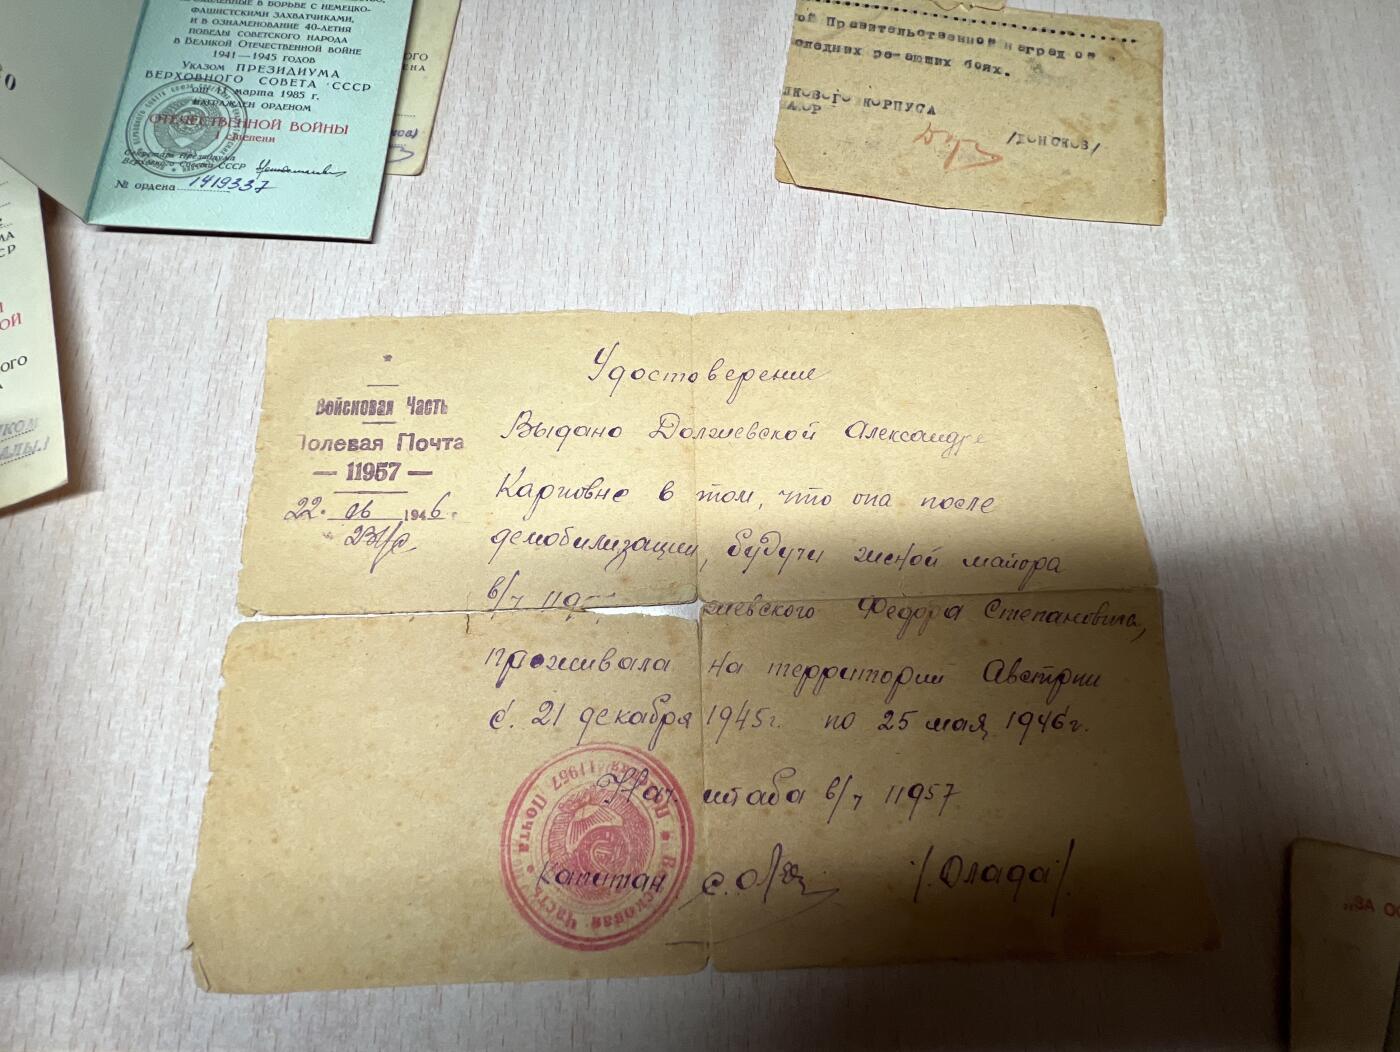 0
в борьбе с немецко-
фашистскими захватчиками,
и в ознаменование 40-летия
победы советского народа
в Великой Отечественной войне
1941—1945 годов
Указом ПРЕЗИДИУМА
ВЕРХОВНОГО СОВЕТА СССР
от 11 марта 1985 г.
НАГРАЖДЕН ОРДЕНОМ
ОТЕЧЕСТВЕННОЙ ВОЙНЫ
I степени
Секретарь Президиума
Верховного Совета СССР
№ ордена 1419337
ой Правительственной наград ой
последних решающих боях.
КОРПУСА
/ДОНСКОВ/
Войсковая Часть
Полевая Почта
— 11957 —
22. 06 1946 г.
Удостоверение
Выдано Должевской Александре
Карповне в том, что она после
демобилизации, будучи женой майора
в/ч 119 жевского Федора Степановича,
проживала на территории Австрии
с 21 декабря 1945г. по 25 мая 1946г.
Нач. штаба в/ч 11957
Капитан /Олада/
Войсковая Часть * Полевая Почта 11957 *